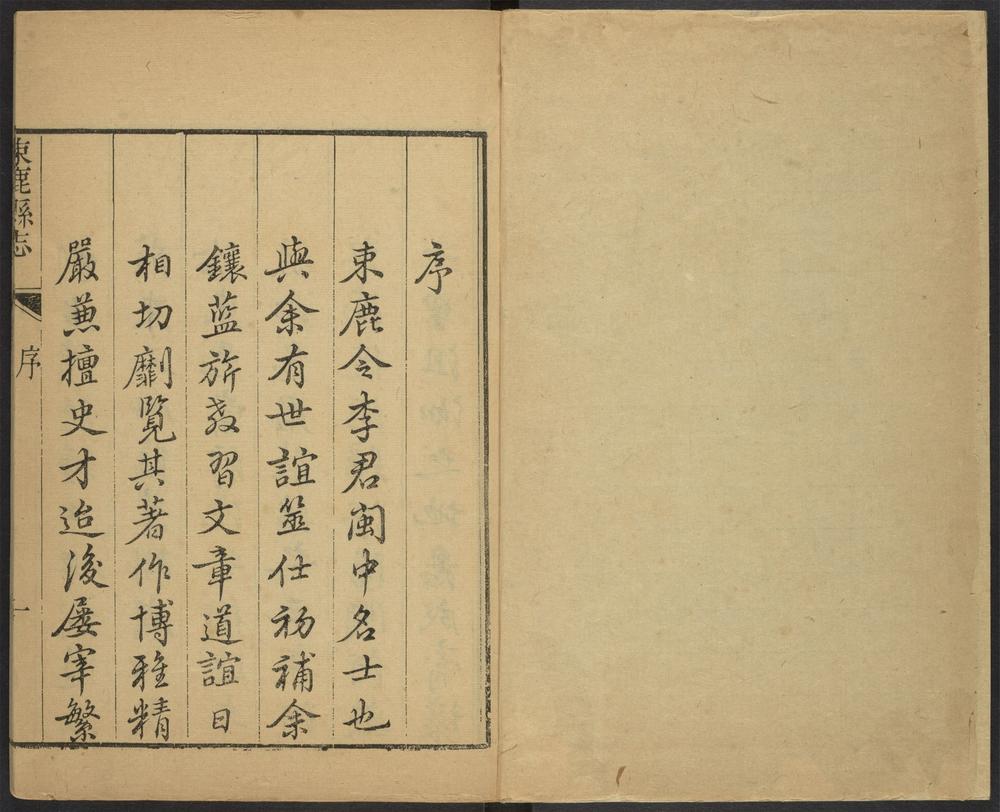 序
束鹿令李君閩中名士也
與余有世誼筮仕初補余
鑲藍旂教習文章道誼日
相切劘覽其著作博雅精
嚴蒹擅史才迨後屡宰繁
束鹿縣志
序
一